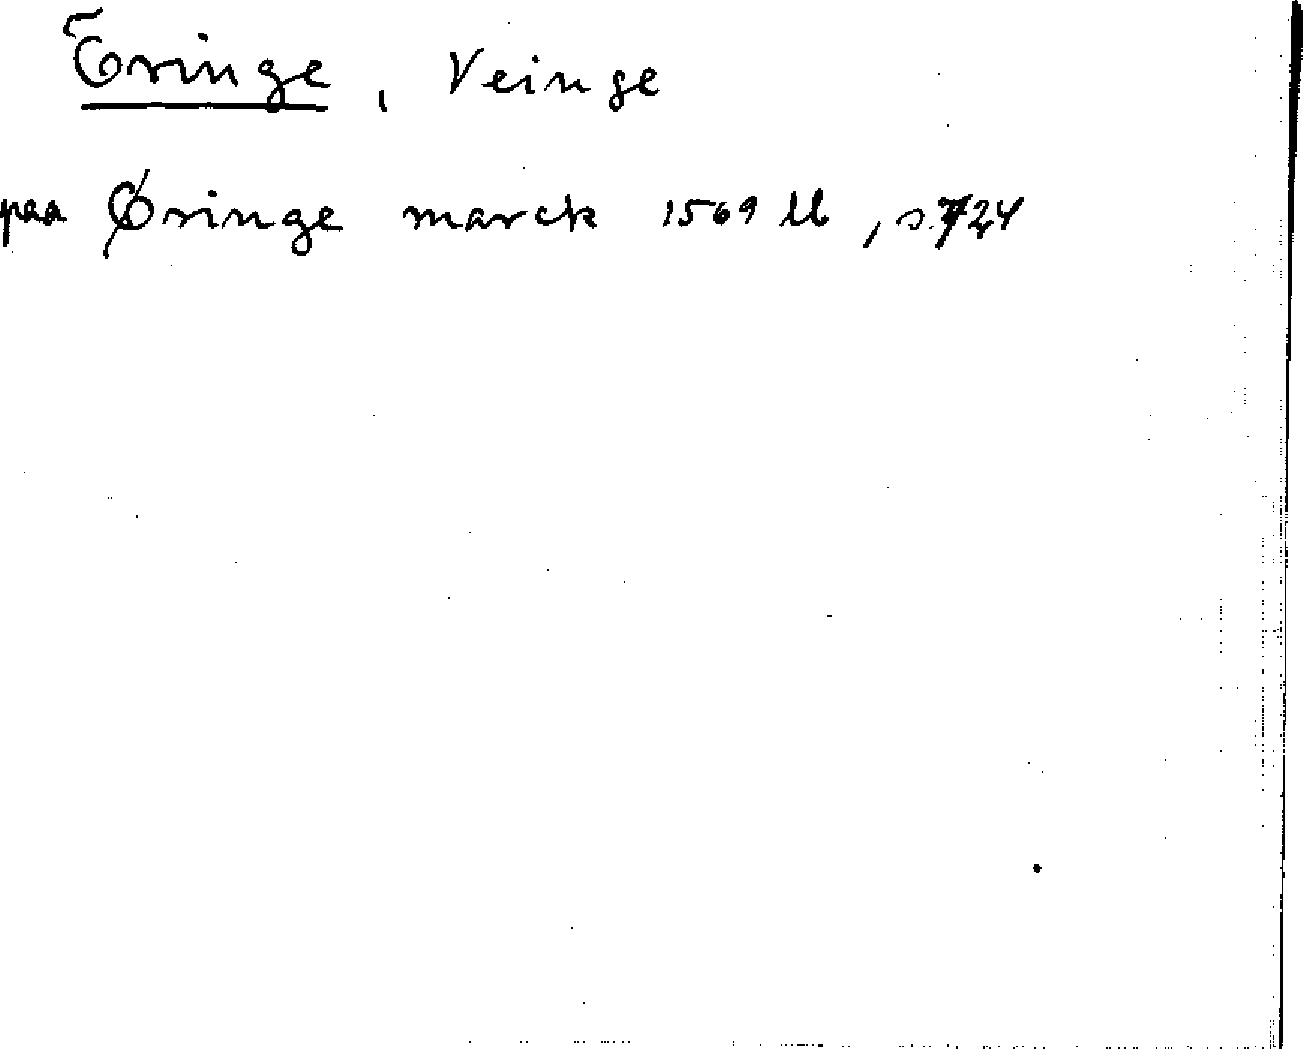 Öringe, Veinge
paa Øringe marck 1569 lb, s. 724